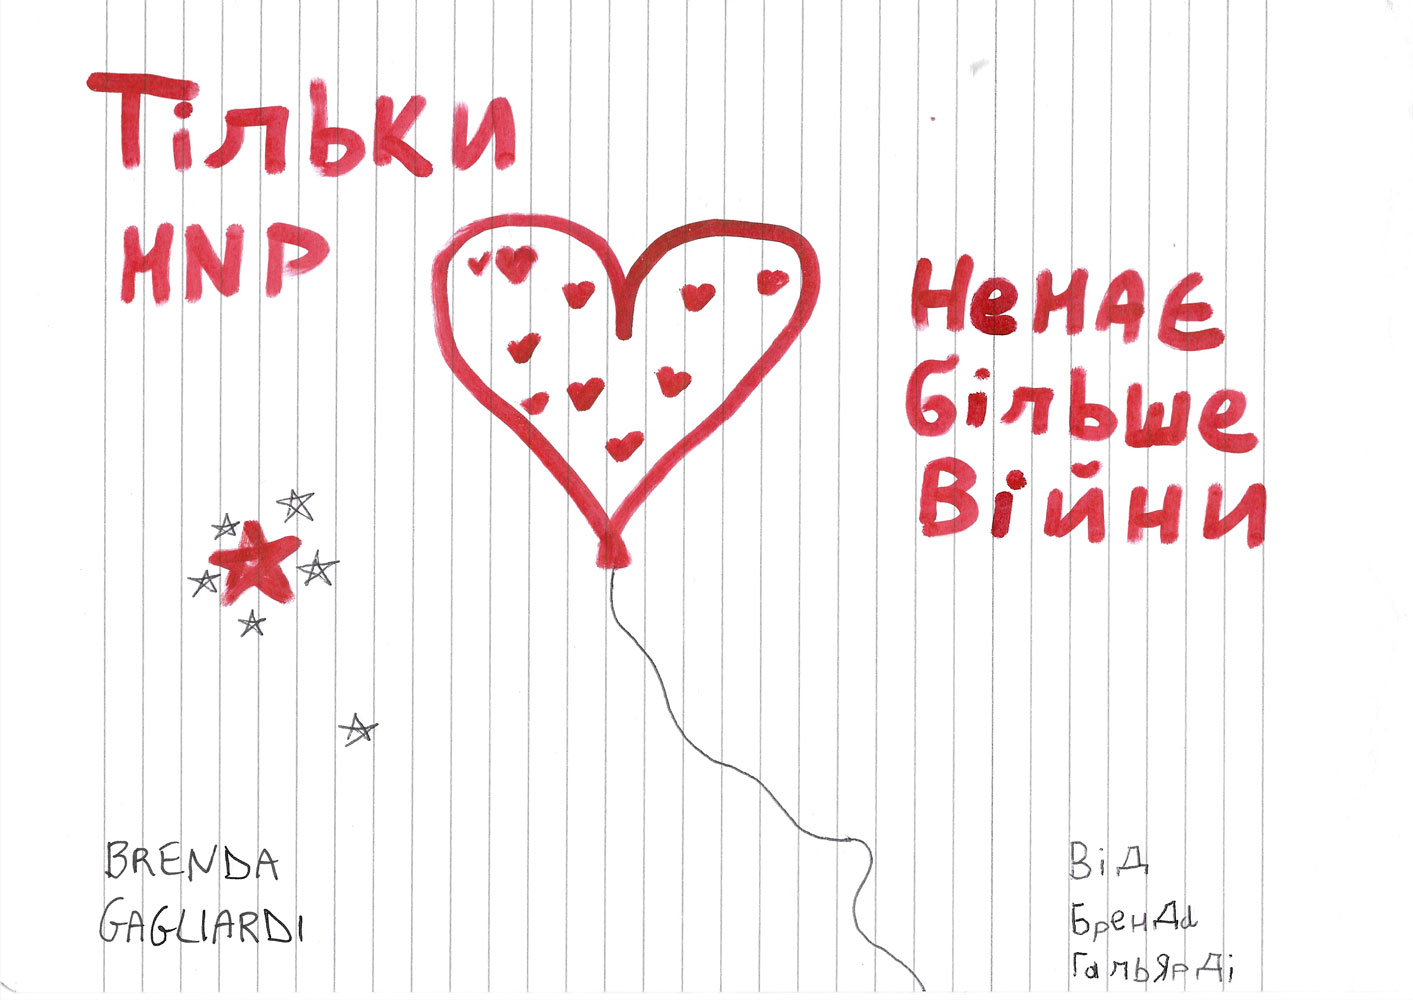 Тільки
мир
Немає
більше
війни
BRENDA
GAGLIARDI
Від
Бренда
Гальярді